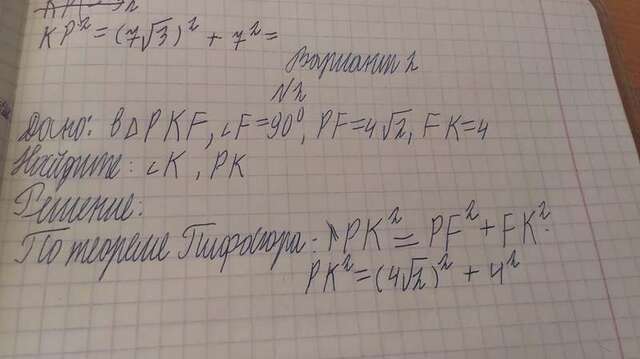 KP² = (7√3)² + 7² =
Вариант 2
N2
Дано: в △PKF, ∠F=90⁰, PF=4√2, FK=4
Найдите: ∠K, PK
Решение:
По теореме Пифагора: PK² = PF² + FK²
PK² = (4√2)² + 4²